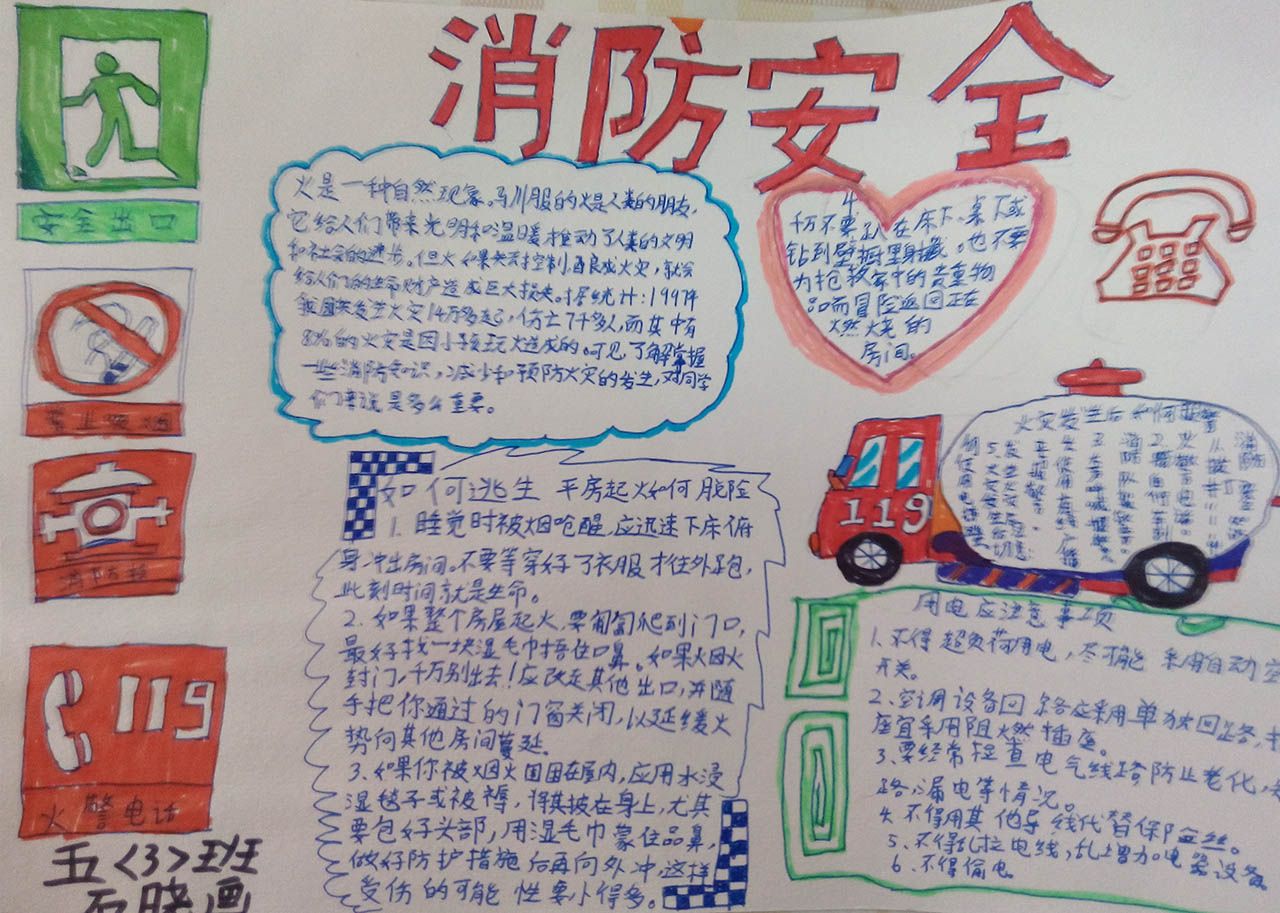 消防安全
安全出口
禁止吸烟
消防栓
119
火警电话
五<3>班
石晓画
火是一种自然现象。马川服的火是人类的朋友,
它给人们带来光明和温暖推动了人类的文明
和社会的进步。但火如果失去控制,酿成火灾,就会
给人们的生命财产造成巨大损失。据统计:1997年
我国共发生火灾14万多起,伤亡7千多人,而其中有
8%的火灾是因小孩玩火造成的。可见,了解掌握
一些消防知识,减少和预防火灾的发生,对同学
们来说是多么重要。
4
千万不要趴在床下、桌下或
钻到壁橱里躲藏。也不要
为抢救家中的贵重物
品而冒险返回正在
燃烧的
房间。
如何逃生 平房起火如何脱险
1. 睡觉时被烟呛醒,应迅速下床俯
身冲出房间。不要等穿好了衣服才往外跑,
此刻时间就是生命。
2. 如果整个房屋起火,要匍匐爬到门口,
最好找一块湿毛巾捂住口鼻。如果火烟火
封门,千万别出去!应改走其他出口,并随
手把你通过的门窗关闭,以延缓火
势向其他房间蔓延。
3. 如果你被烟火围困在屋内,应用水浸
湿毯子或被褥,将其披在身上,尤其
要包好头部,用湿毛巾蒙住品鼻,
做好防护措施后再向外冲,这样
受伤的可能性要小得多。
火灾发生后如何报警
119
用电应注意事项
1. 不得超负荷用电,尽可能采用自动空
开关。
2. 空调设备回路应采用单独回路,
座宜采用阻燃插座。
3. 要经常检查电气线路防止老化,
路、漏电等情况。
4. 不得用其他导线代替保险丝。
5. 不得乱拉电线,乱增加电器设备。
6. 不得偷电